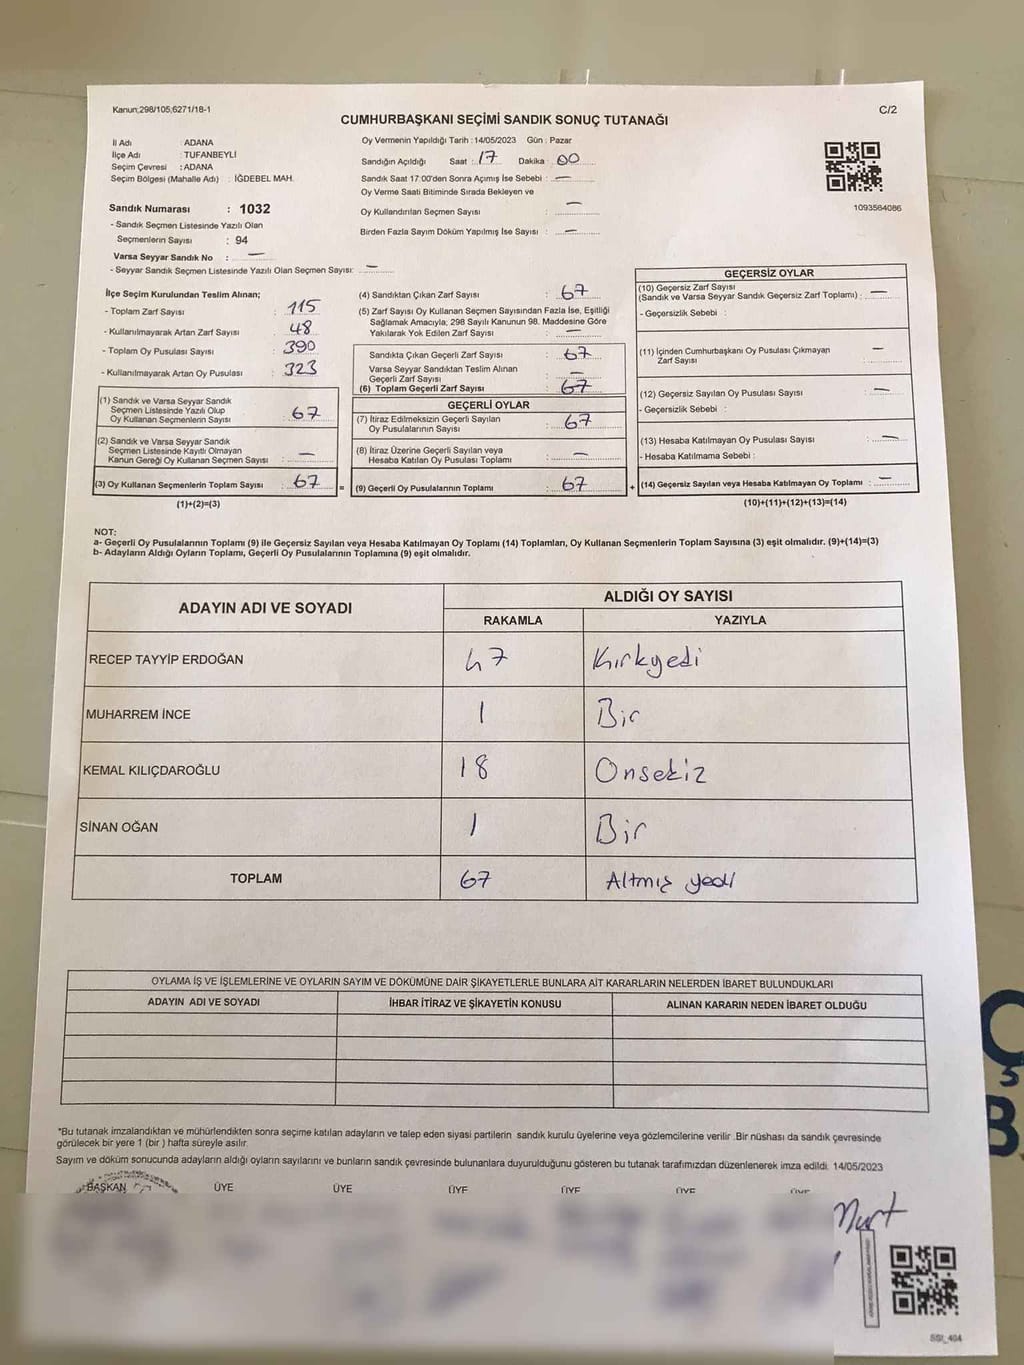 Kanun;298/105;6271/18-1
C/2
CUMHURBAŞKANI SEÇİMİ SANDIK SONUÇ TUTANAĞI
İl Adı : ADANA
İlçe Adı : TUFANBEYLİ
Seçim Çevresi : ADANA
Seçim Bölgesi (Mahalle Adı) : İĞDEBEL MAH.
Oy Vermenin Yapıldığı Tarih : 14/05/2023 Gün : Pazar
Sandığın Açıldığı Saat : 17 Dakika : 00
Sandık Saat 17:00'den Sonra Açımış İse Sebebi : —
Oy Verme Saati Bitiminde Sırada Bekleyen ve
Oy Kullandırılan Seçmen Sayısı : —
Birden Fazla Sayım Döküm Yapılmış İse Sayısı : —
1093564086
Sandık Numarası : 1032
- Sandık Seçmen Listesinde Yazılı Olan
Seçmenlerin Sayısı : 94
Varsa Seyyar Sandık No : —
- Seyyar Sandık Seçmen Listesinde Yazılı Olan Seçmen Sayısı: —
İlçe Seçim Kurulundan Teslim Alınan;
- Toplam Zarf Sayısı : 115
- Kullanılmayarak Artan Zarf Sayısı : 48
- Toplam Oy Pusulası Sayısı : 390
- Kullanılmayarak Artan Oy Pusulası : 323
(1) Sandık ve Varsa Seyyar Sandık
Seçmen Listesinde Yazılı Olup
Oy Kullanan Seçmenlerin Sayısı : 67
(2) Sandık ve Varsa Seyyar Sandık
Seçmen Listesinde Kayıtlı Olmayan
Kanun Gereği Oy Kullanan Seçmen Sayısı : —
(3) Oy Kullanan Seçmenlerin Toplam Sayısı : 67
(1)+(2)=(3)
(4) Sandıktan Çıkan Zarf Sayısı : 67
(5) Zarf Sayısı Oy Kullanan Seçmen Sayısından Fazla İse, Eşitliği
Sağlamak Amacıyla; 298 Sayılı Kanunun 98. Maddesine Göre
Yakılarak Yok Edilen Zarf Sayısı : —
Sandıkta Çıkan Geçerli Zarf Sayısı : 67
Varsa Seyyar Sandıktan Teslim Alınan
Geçerli Zarf Sayısı : —
(6) Toplam Geçerli Zarf Sayısı : 67
GEÇERLİ OYLAR
(7) İtiraz Edilmeksizin Geçerli Sayılan
Oy Pusulalarının Sayısı : 67
(8) İtiraz Üzerine Geçerli Sayılan veya
Hesaba Katılan Oy Pusulası Toplamı : —
= (9) Geçerli Oy Pusulalarının Toplamı : 67 +
GEÇERSİZ OYLAR
(10) Geçersiz Zarf Sayısı
(Sandık ve Varsa Seyyar Sandık Geçersiz Zarf Toplamı) : —
- Geçersizlik Sebebi :
(11) İçinden Cumhurbaşkanı Oy Pusulası Çıkmayan
Zarf Sayısı : —
(12) Geçersiz Sayılan Oy Pusulası Sayısı : —
- Geçersizlik Sebebi :
(13) Hesaba Katılmayan Oy Pusulası Sayısı : —
- Hesaba Katılmama Sebebi :
(14) Geçersiz Sayılan veya Hesaba Katılmayan Oy Toplamı : —
(10)+(11)+(12)+(13)=(14)
NOT:
a- Geçerli Oy Pusulalarının Toplamı (9) ile Geçersiz Sayılan veya Hesaba Katılmayan Oy Toplamı (14) Toplamları, Oy Kullanan Seçmenlerin Toplam Sayısına (3) eşit olmalıdır. (9)+(14)=(3)
b- Adayların Aldığı Oyların Toplamı, Geçerli Oy Pusulalarının Toplamına (9) eşit olmalıdır.
ADAYIN ADI VE SOYADI
ALDIĞI OY SAYISI
RAKAMLA YAZIYLA
RECEP TAYYİP ERDOĞAN 47 Kırkyedi
MUHARREM İNCE 1 Bir
KEMAL KILIÇDAROĞLU 18 Onsekiz
SİNAN OĞAN 1 Bir
TOPLAM 67 Altmış yedi
OYLAMA İŞ VE İŞLEMLERİNE VE OYLARIN SAYIM VE DÖKÜMÜNE DAİR ŞİKAYETLERLE BUNLARA AİT KARARLARIN NELERDEN İBARET BULUNDUKLARI
ADAYIN ADI VE SOYADI İHBAR İTİRAZ VE ŞİKAYETİN KONUSU ALINAN KARARIN NEDEN İBARET OLDUĞU
*Bu tutanak imzalandıktan ve mühürlendikten sonra seçime katılan adayların ve talep eden siyasi partilerin sandık kurulu üyelerine veya gözlemcilerine verilir .Bir nüshası da sandık çevresinde
görülecek bir yere 1 (bir ) hafta süreyle asılır.
Sayım ve döküm sonucunda adayların aldığı oyların sayılarını ve bunların sandık çevresinde bulunanlara duyurulduğunu gösteren bu tutanak tarafımızdan düzenlenerek imza edildi. 14/05/2023
BAŞKAN ÜYE ÜYE ÜYE ÜYE ÜYE ÜYE